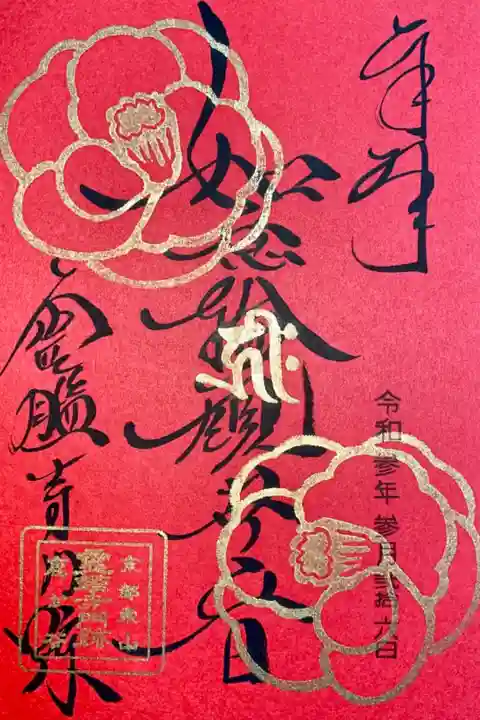 奉拝
令和参年参月弐拾六日
如意輪観世音
霊鑑寺門跡
京都東山
霊鑑寺門跡